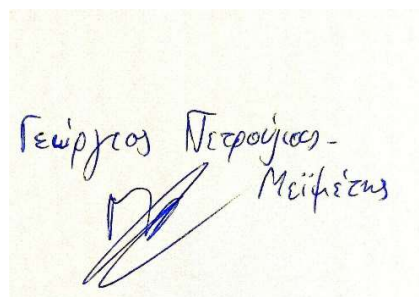 Γεώργιος Πετρούγιας-
Μεϊμέτης